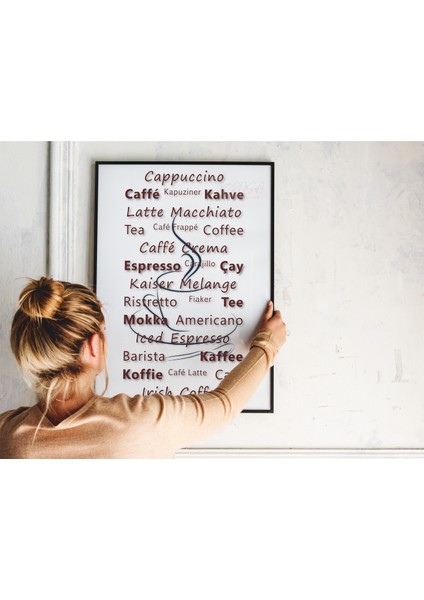 Cappuccino
Caffé Kapuziner Kahve
Latte Macchiato
Tea Café Frappé Coffee
Caffé Crema
Espresso Carajillo Çay
Kaiser Melange
Ristretto Fiaker Tee
Mokka Americano
Iced Espresso
Barista Kaffee
Koffie Café Latte
Irish